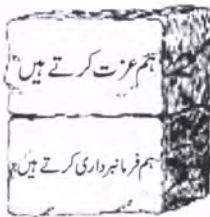 ہم عزت کرتے ہیں
ہم فرمانبرداری کرتے ہیں